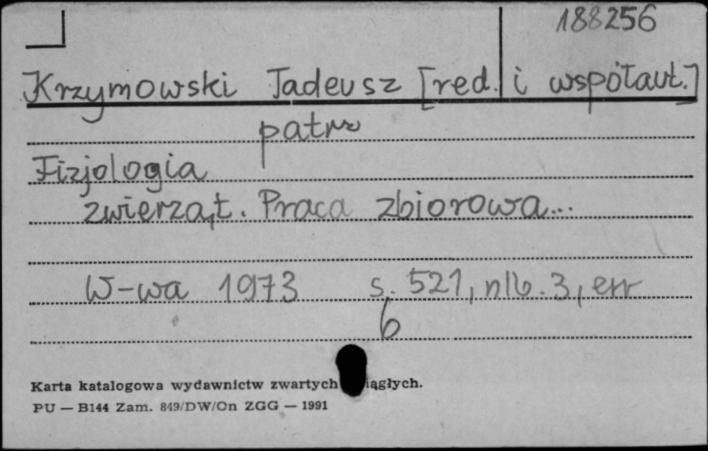 188256
Krzymowski Tadeusz [red. i współaut.]
patrz
Fizjologia
zwierząt. Praca zbiorowa...
W-wa 1973 s. 521, nlb. 3, err
6
Karta katalogowa wydawnictw zwartych iągłych.
PU — B144 Zam. 849/DW/On ZGG — 1991